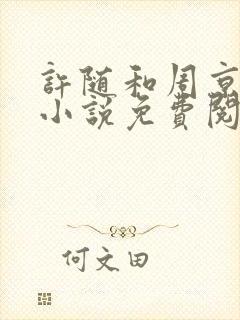 許随和周京
小說免費閱
何文田